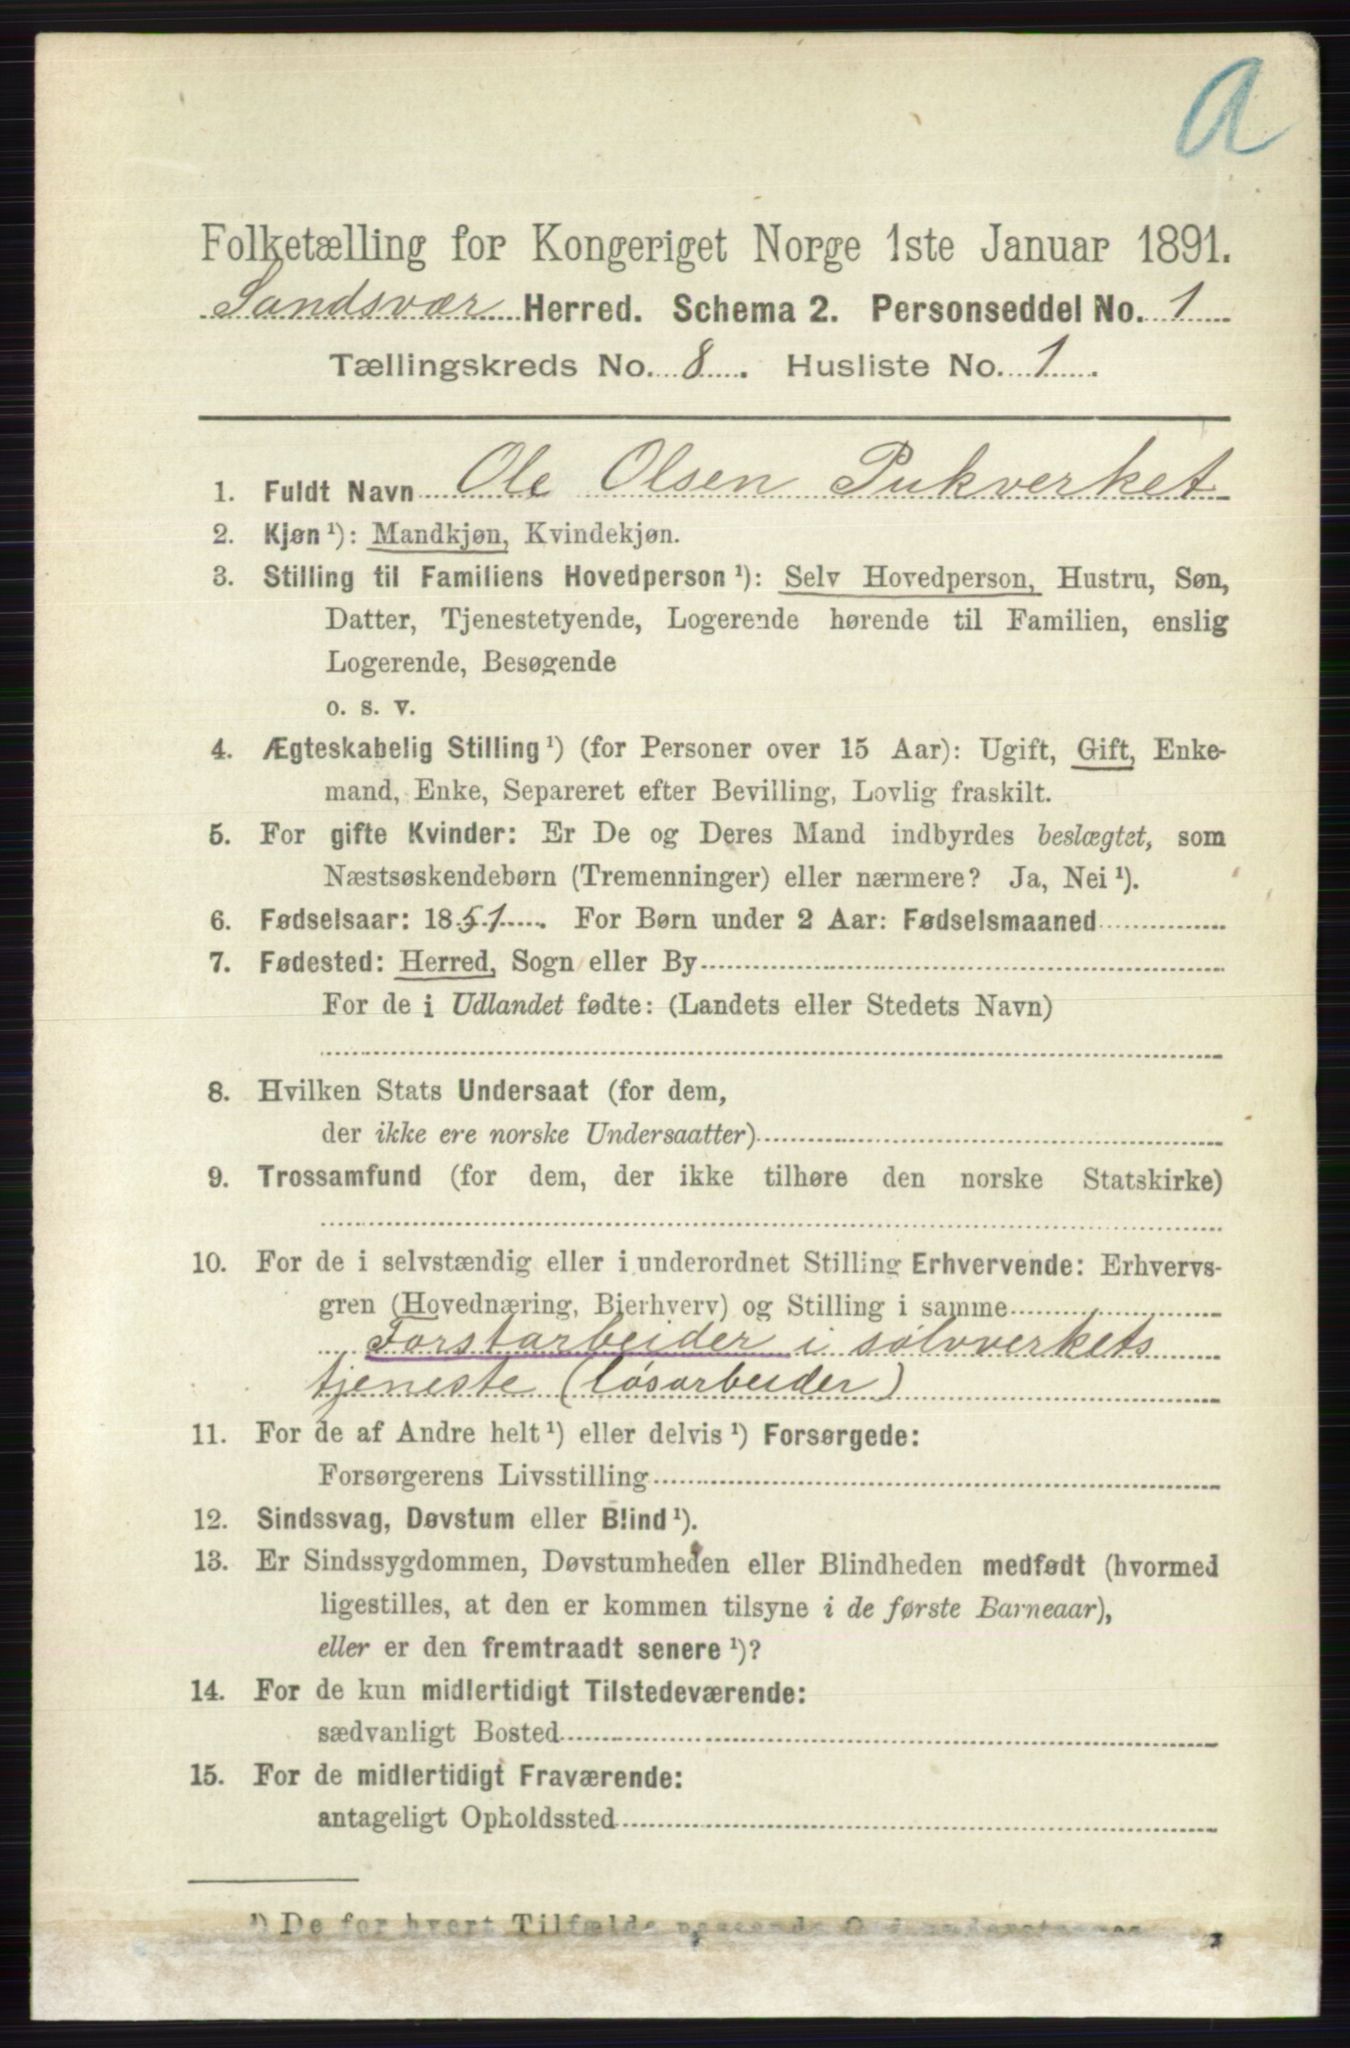 a
Folketælling for Kongeriget Norge 1ste Januar 1891.
Sandsvær Herred. Schema 2. Personseddel No. 1
Tællingskreds No. 8. Husliste No. 1.
1. Fuldt Navn Ole Olsen Pukverket
2. Kjøn¹): Mandkjøn, Kvindekjøn.
3. Stilling til Familiens Hovedperson¹): Selv Hovedperson, Hustru, Søn,
Datter, Tjenestetyende, Logerende hørende til Familien, enslig
Logerende, Besøgende
o. s. v.
4. Ægteskabelig Stilling¹) (for Personer over 15 Aar): Ugift, Gift, Enke-
mand, Enke, Separeret efter Bevilling, Lovlig fraskilt.
5. For gifte Kvinder: Er De og Deres Mand indbyrdes beslægtet, som
Næstsøskendebørn (Tremenninger) eller nærmere? Ja, Nei¹).
6. Fødselsaar: 1851. For Børn under 2 Aar: Fødselsmaaned
7. Fødested: Herred, Sogn eller By
For de i Udlandet fødte: (Landets eller Stedets Navn)
8. Hvilken Stats Undersaat (for dem,
der ikke ere norske Undersaatter)
9. Trossamfund (for dem, der ikke tilhøre den norske Statskirke)
10. For de i selvstændig eller i underordnet Stilling Erhvervende: Erhvervs-
gren (Hovednæring, Bierhverv) og Stilling i samme
Forstarbeider i sølvverkets
tjeneste (løsarbeider)
11. For de af Andre helt¹) eller delvis¹) Forsørgede:
Forsørgerens Livsstilling
12. Sindssvag, Døvstum eller Blind¹).
13. Er Sindssygdommen, Døvstumheden eller Blindheden medfødt (hvormed
ligestilles, at den er kommen tilsyne i de første Barneaar),
eller er den fremtraadt senere¹)?
14. For de kun midlertidigt Tilstedeværende:
sædvanligt Bosted
15. For de midlertidigt Fraværende:
antageligt Opholdssted
¹) De for hvert Tilfælde passende Ord understreges